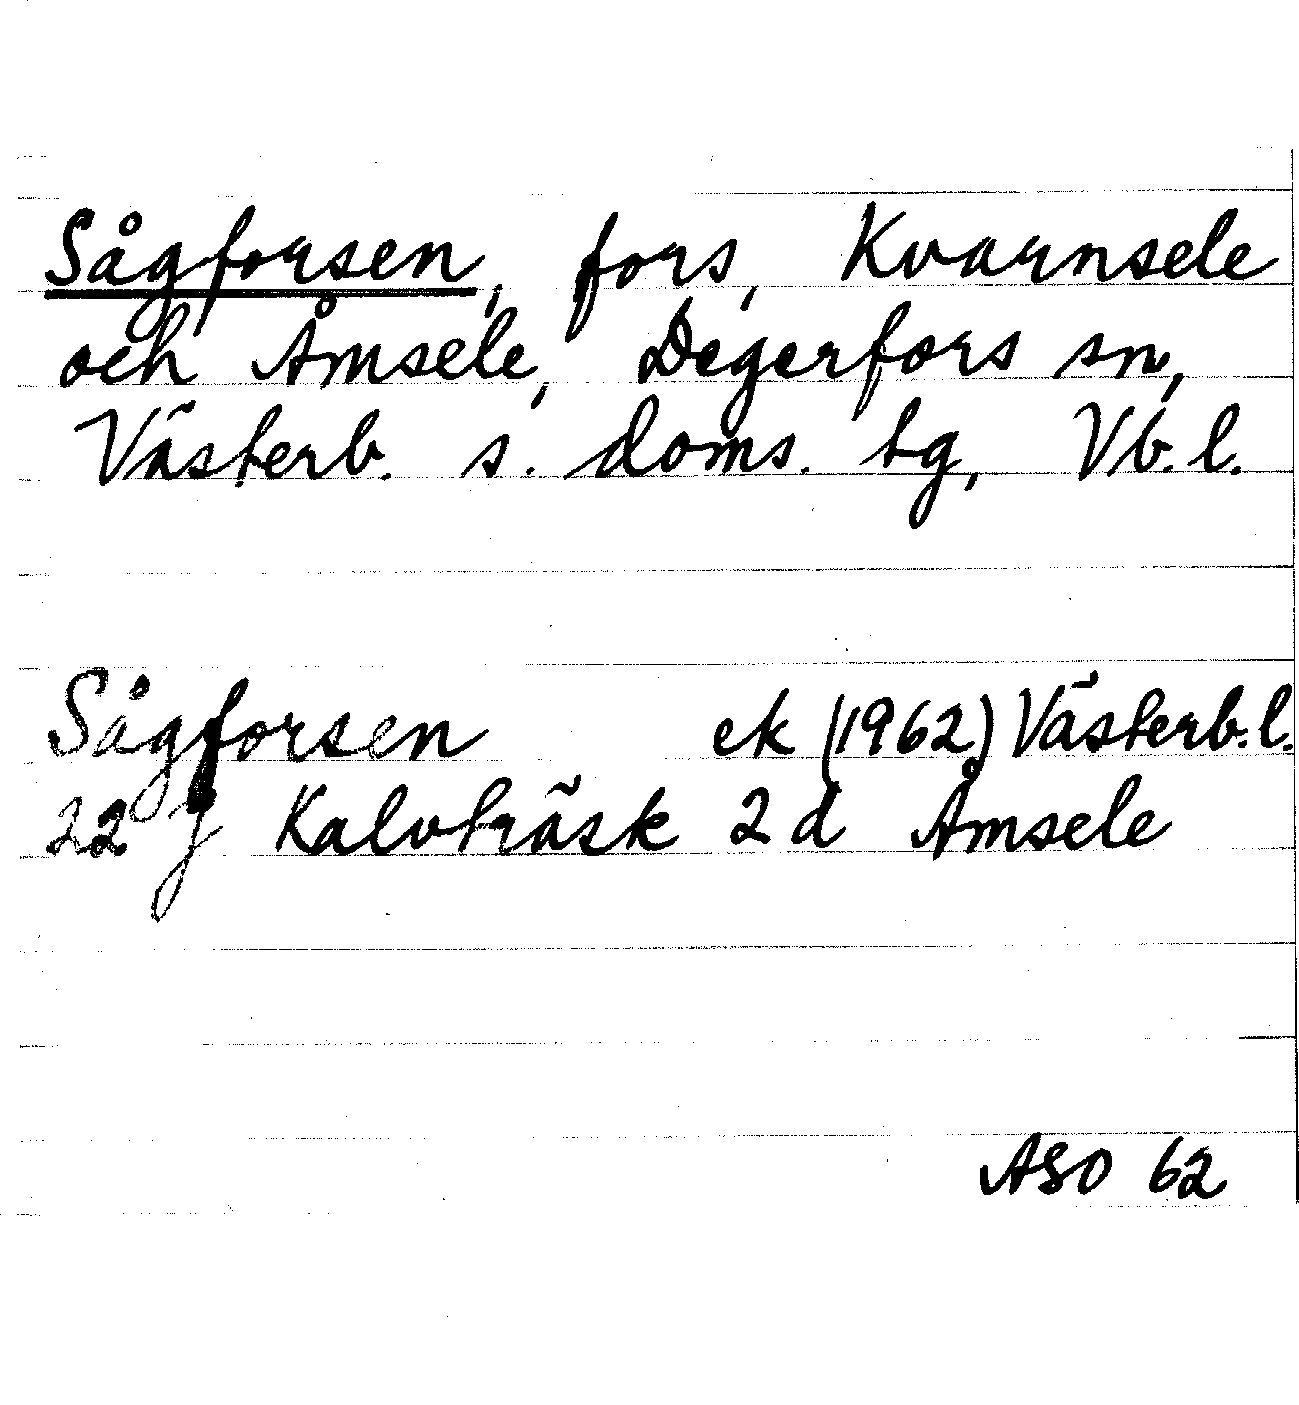 Sågforsen, fors, Kvarnsele
och Åmsele, Degerfors sn,
Västerb. s. doms. tg, Vb. l.
Sågforsen ek (1962) Västerb. l.
22 J Kalvträsk 2 d Åmsele
ASO 62